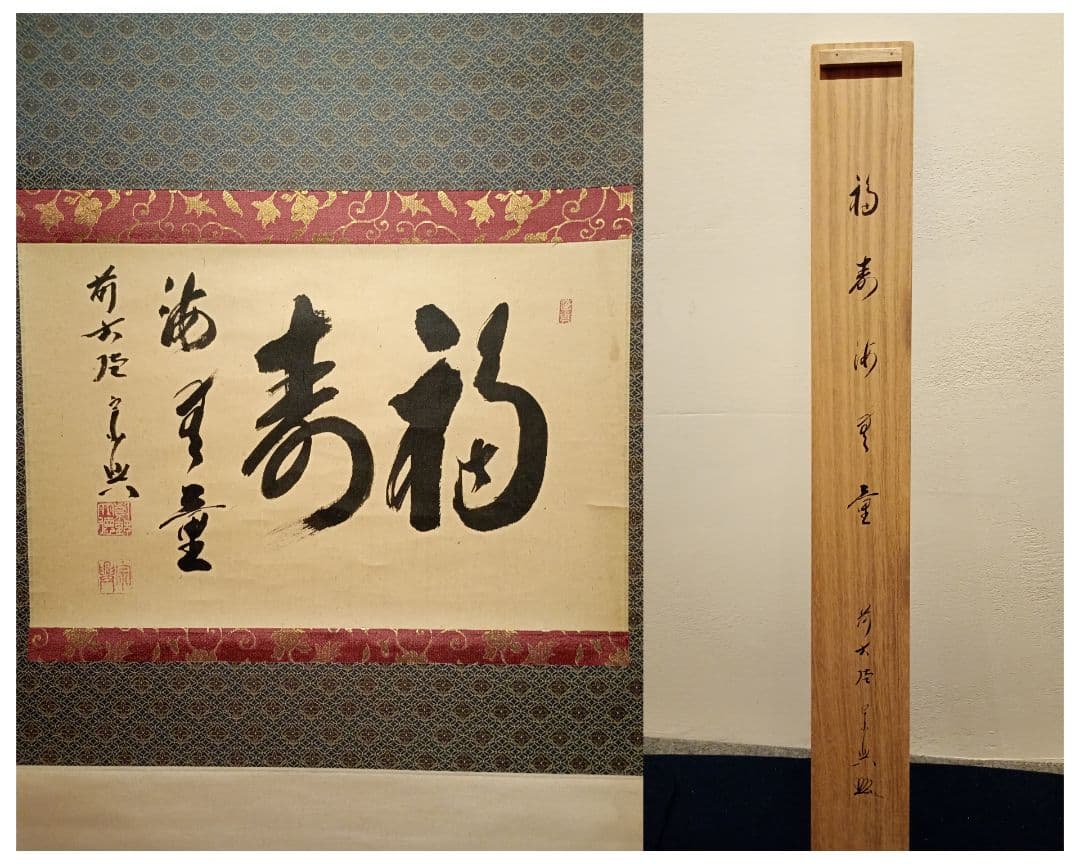 福寿
海無量
前大徳 宗興
福寿海無量 前大徳 宗興